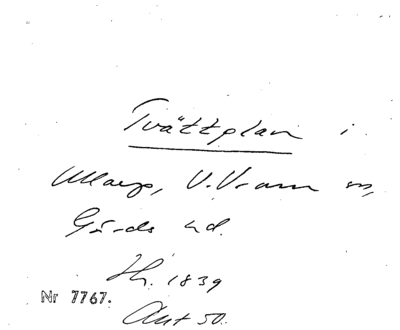 Tvättplan i
Ullarp, V. Vram sn,
Gärds hd.
Th. 1839
Nr 7767.
Akt 50.